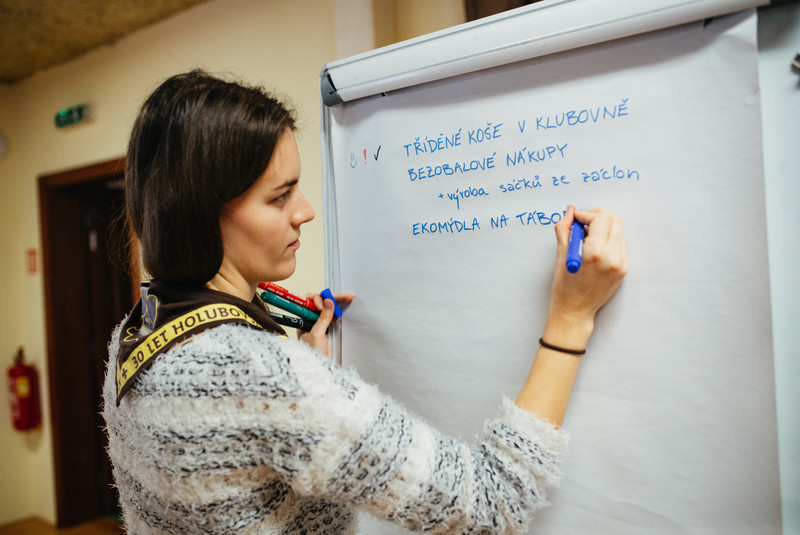 TŘÍDĚNÉ KOŠE V KLUBOVNĚ
BEZOBALOVÉ NÁKUPY
+ výroba sáčků ze záclon
EKOMÝDLA NA TÁBO
30 LET HOLUBOV